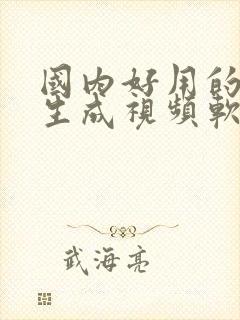 國内好用的
生成視頻軟
武海亮